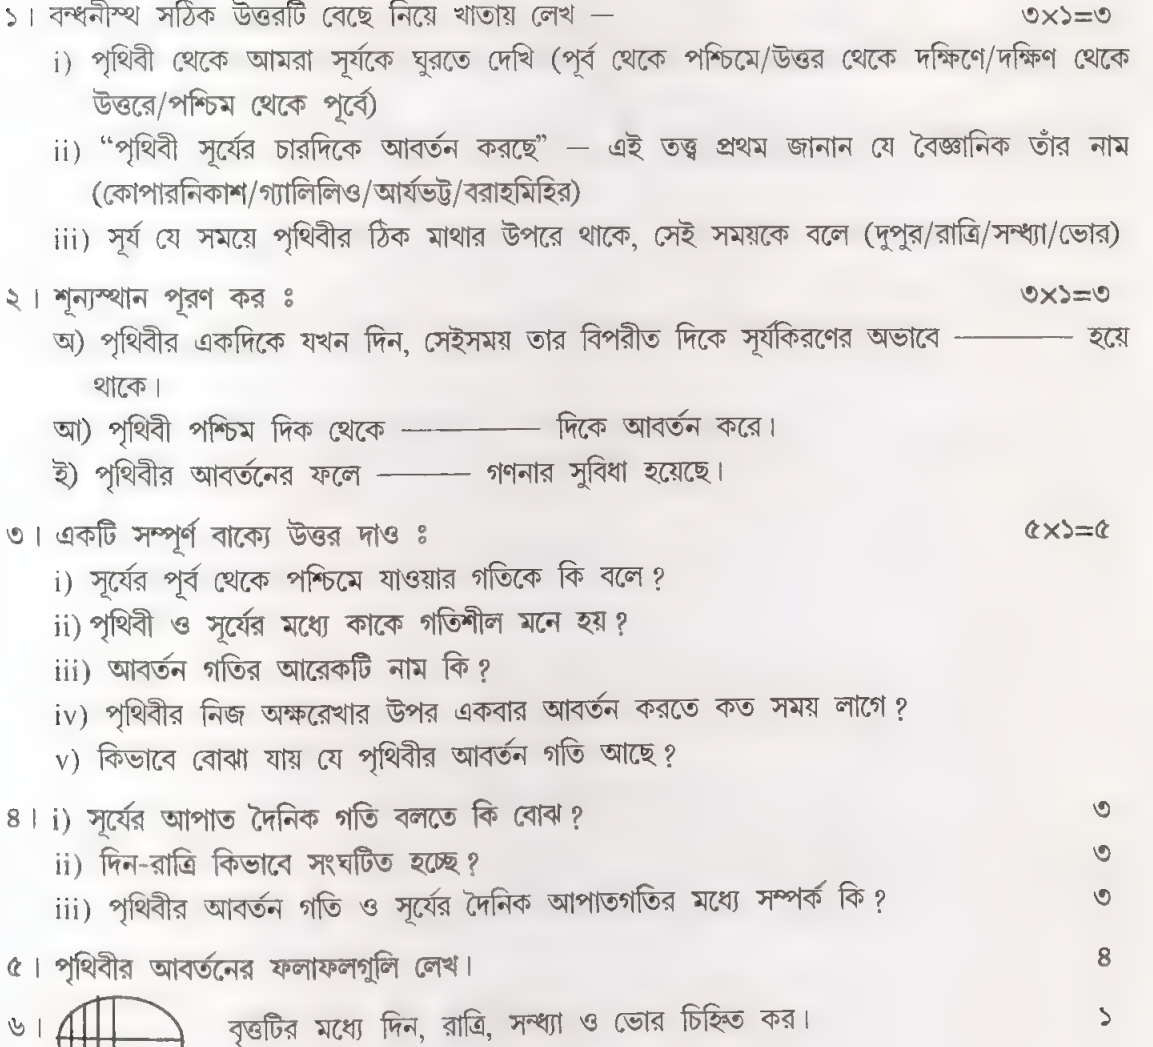 ১। বন্ধনীস্থ সঠিক উত্তরটি বেছে নিয়ে খাতায় লেখ — ৩×১=৩
i) পৃথিবী থেকে আমরা সূর্যকে ঘুরতে দেখি (পূর্ব থেকে পশ্চিমে/উত্তর থেকে দক্ষিণে/দক্ষিণ থেকে
উত্তরে/পশ্চিম থেকে পূর্বে)
ii) “পৃথিবী সূর্যের চারদিকে আবর্তন করছে” — এই তত্ত্ব প্রথম জানান যে বৈজ্ঞানিক তাঁর নাম
(কোপারনিকাশ/গ্যালিলিও/আর্যভট্ট/বরাহমিহির)
iii) সূর্য যে সময়ে পৃথিবীর ঠিক মাথার উপরে থাকে, সেই সময়কে বলে (দুপুর/রাত্রি/সন্ধ্যা/ভোর)
২। শূন্যস্থান পূরণ কর ঃ ৩×১=৩
অ) পৃথিবীর একদিকে যখন দিন, সেইসময় তার বিপরীত দিকে সূর্যকিরণের অভাবে ——— হয়ে
থাকে।
আ) পৃথিবী পশ্চিম দিক থেকে ——— দিকে আবর্তন করে।
ই) পৃথিবীর আবর্তনের ফলে ——— গণনার সুবিধা হয়েছে।
৩। একটি সম্পূর্ণ বাক্যে উত্তর দাও ঃ ৫×১=৫
i) সূর্যের পূর্ব থেকে পশ্চিমে যাওয়ার গতিকে কি বলে?
ii) পৃথিবী ও সূর্যের মধ্যে কাকে গতিশীল মনে হয়?
iii) আবর্তন গতির আরেকটি নাম কি?
iv) পৃথিবীর নিজ অক্ষরেখার উপর একবার আবর্তন করতে কত সময় লাগে?
v) কিভাবে বোঝা যায় যে পৃথিবীর আবর্তন গতি আছে?
৪। i) সূর্যের আপাত দৈনিক গতি বলতে কি বোঝ? ৩
ii) দিন-রাত্রি কিভাবে সংঘটিত হচ্ছে? ৩
iii) পৃথিবীর আবর্তন গতি ও সূর্যের দৈনিক আপাতগতির মধ্যে সম্পর্ক কি? ৩
৫। পৃথিবীর আবর্তনের ফলাফলগুলি লেখ। ৪
৬। বৃত্তটির মধ্যে দিন, রাত্রি, সন্ধ্যা ও ভোর চিহ্নিত কর। ১